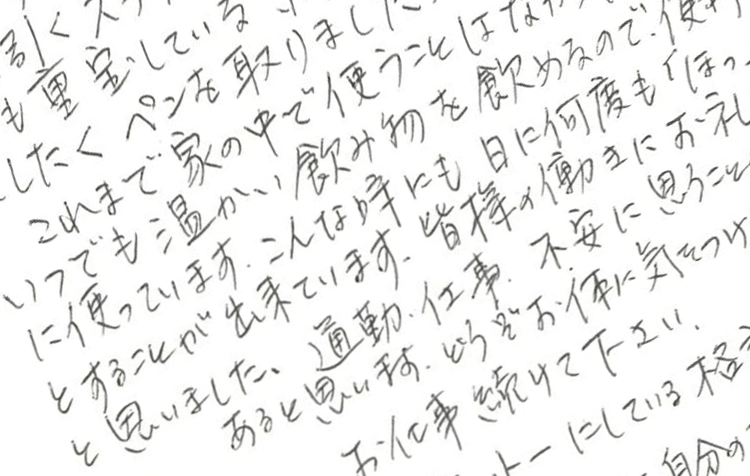 引く
も重宝している
したくペンを取りました
これまで家の中で使うことはなか
いつでも温かい飲み物を飲めるので、便
に使っています。こんな時にも日に何度もほっ
とすることが出来ています。皆様の働きにお礼
と思いました。通勤、仕事、不安に思うこと
あると思います。どうぞお体に気をつけ
お仕事続けて下さい。
ーにしている格
自分の